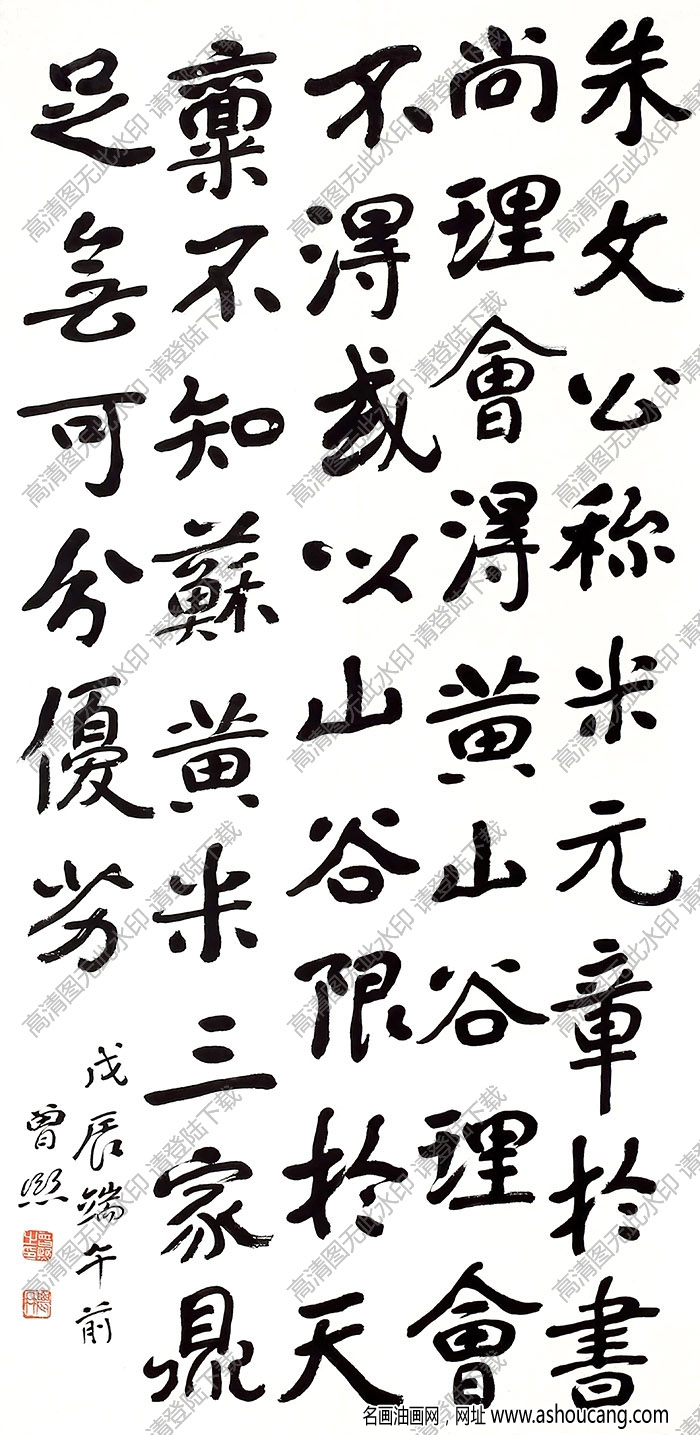 朱文公称米元章於書
尚理會得黄山谷理會
不得或以山谷限於天
稟不知蘇黄米三家鼎
足無可分優劣
戊辰端午前
曾熙
高清图无此水印 请登陆下载
名画油画网，网址 www.ashoucang.com